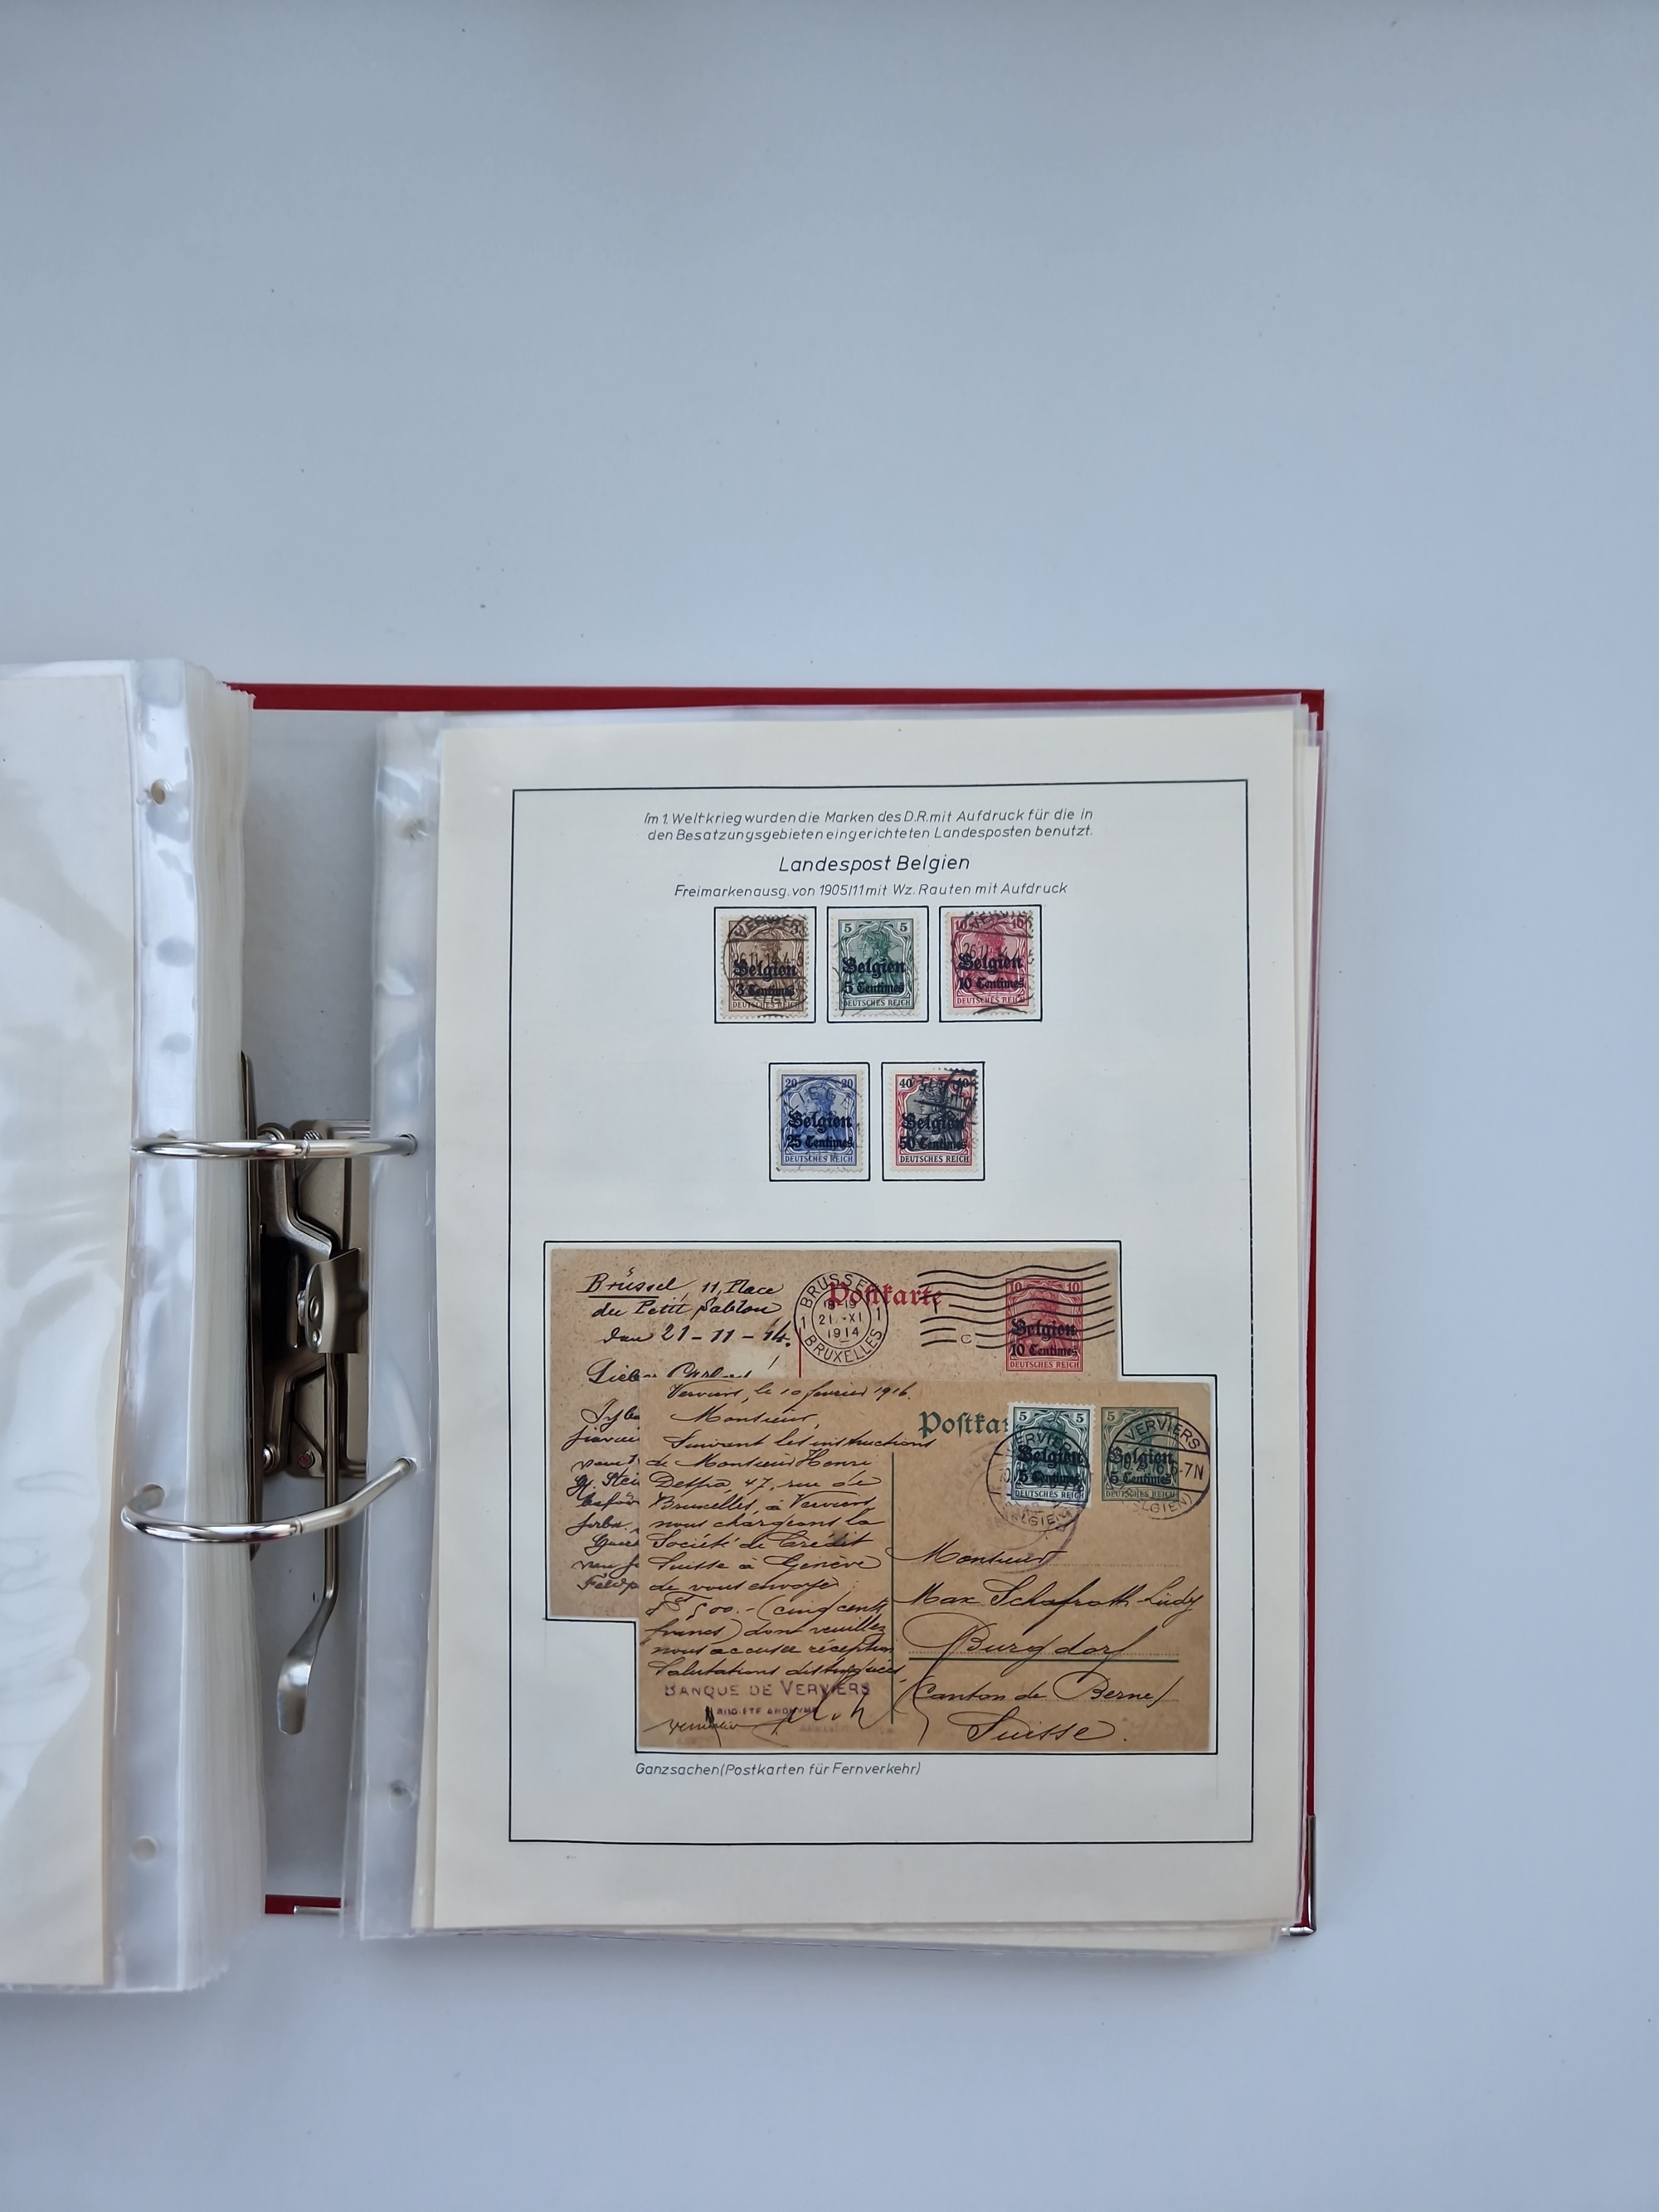 Im 1. Weltkrieg wurden die Marken des D.R. mit Aufdruck für die in
den Besatzungsgebieten eingerichteten Landesposten benutzt.
Landespost Belgien
Freimarkenausg. von 1905/11 mit Wz. Rauten mit Aufdruck
VERVIERS
Belgien
3 Centimes
DEUTSCHES REICH
5 5
Belgien
5 Centimes
DEUTSCHES REICH
10 10
Belgien
10 Centimes
DEUTSCHES REICH
20 20
Belgien
25 Centimes
DEUTSCHES REICH
40 40
Belgien
50 Centimes
DEUTSCHES REICH
Brüssel, 11, Place
du Petit Sablon
den 21-11-14.
Postkarte
BRÜSSEL
1 21.-XI 1
1914
BRUXELLES
C
10 10
Belgien
10 Centimes
DEUTSCHES REICH
Verviers, le 10 février 1916.
Monsieur,
Suivant les instructions
de Monsieur Henri
47, rue de
Bruxelles, à Verviers
nous chargeons la
Société de Crédit
Suisse à Genève
de vous envoyer
500.- (cinq cents
francs) dont veuillez
nous accuser réception
Salutations distinguées
BANQUE DE VERVIERS
SOCIÉTÉ ANONYME
Postkar
5 5
Belgien
5 Centimes
DEUTSCHES REICH
VERVIERS
5
Belgien
5 Centimes
DEUTSCHES REICH
VERVIERS
6-7N
(BELGIEN)
Monsieur
Max Schafroth-Lüdy
Burgdorf
(Canton de Berne)
Suisse.
Ganzsachen (Postkarten für Fernverkehr)